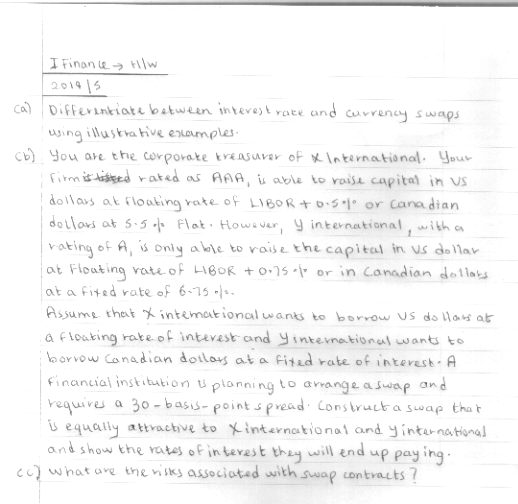 I Finance → H/W
2019/S
(a) Differentiate between interest rate and currency swaps
using illustrative examples.
(b) You are the corporate treasurer of X International. Your
firm rated as AAA, is able to raise capital in US
dollars at floating rate of LIBOR + 0.5% or Canadian
dollars at 5.5% flat. However, Y international, with a
rating of A, is only able to raise the capital in US dollar
at Floating rate of LIBOR + 0.75% or in Canadian dollars
at a fixed rate of 6.75%.
Assume that X international wants to borrow US dollars at
a floating rate of interest and Y international wants to
borrow Canadian dollars at a fixed rate of interest. A
financial institution is planning to arrange a swap and
requires a 30-basis-point spread. Construct a swap that
is equally attractive to X international and Y international
and show the rates of interest they will end up paying.
(c) What are the risks associated with swap contracts?